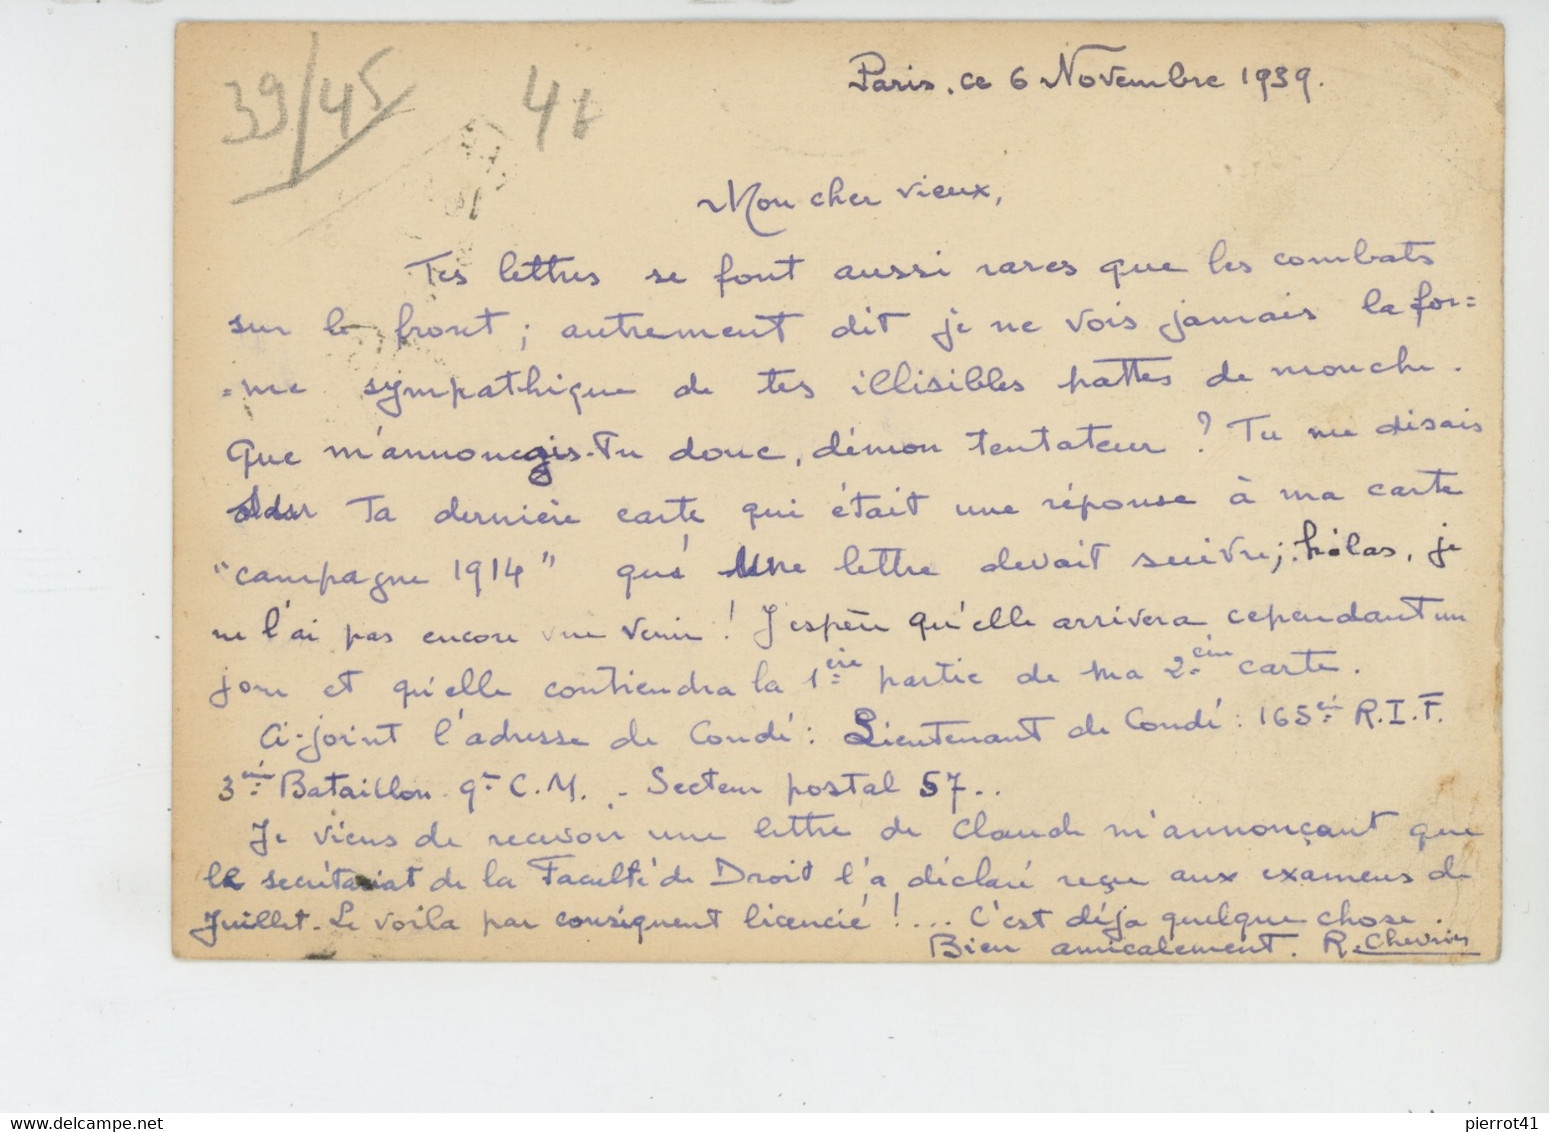 39/45
4€
Paris, ce 6 Novembre 1939.
Mon cher vieux,
Tes lettres se font aussi rares que les combats
sur le front ; autrement dit je ne vois jamais la for=
=me sympathique de tes illisibles pattes de mouche.
Que m'annonçais-Tu donc, démon tentateur ? Tu me disais
sur Ta dernière carte qui était une réponse à ma carte
"campagne 1914" qu'une lettre devait suivre ; hélas, je
ne l'ai pas encore vue venir ! J'espère qu'elle arrivera cependant un
jour et qu'elle contiendra la 1ère partie de ma 2ème carte.
Ci-joint l'adresse de Condé : Lieutenant de Condé : 165è R.I.F.
3è Bataillon 9e C.M. - Secteur postal 57..
Je viens de recevoir une lettre de Claude m'annonçant que
le secrétariat de la Faculté de Droit l'a déclaré reçu aux examens de
Juillet. Le voila par conséquent licencié !... C'est déja quelque chose.
Bien amicalement. R. Chevrier
pierrot41